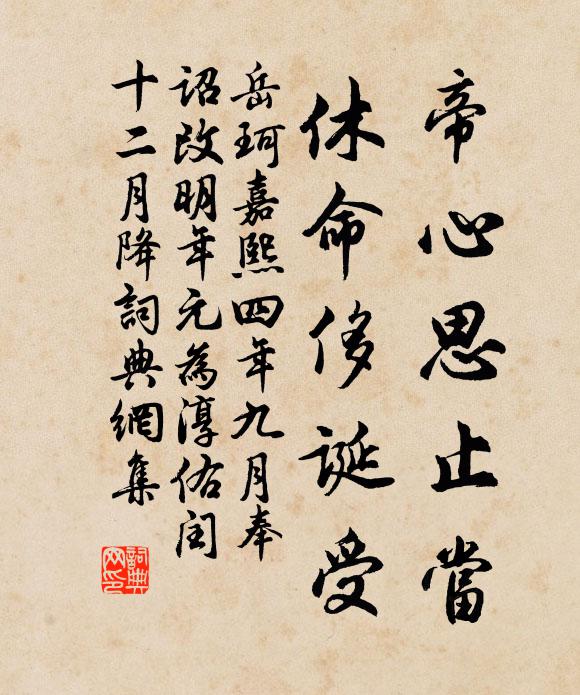 帝心思止當
休命侈誕受
岳珂嘉熙四年九月奉
詔改明年元為淳佑閏
十二月降詞典網集
詞典
网印